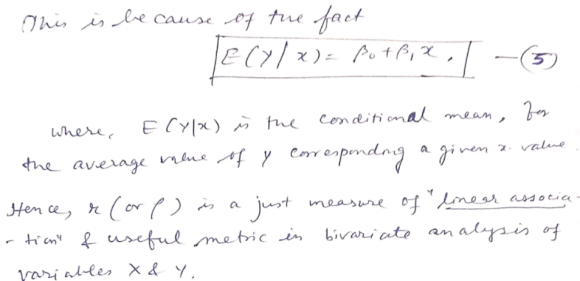 This is because of the fact
E(Y/x) = β₀+β₁x. —(5)
where, E(Y|x) is the conditional mean, for
the average value of y corresponding a given x-value.
Hence, r (or ρ) is a just measure of "linear associa-
-tion" & useful metric in bivariate analysis of
variables X & Y.